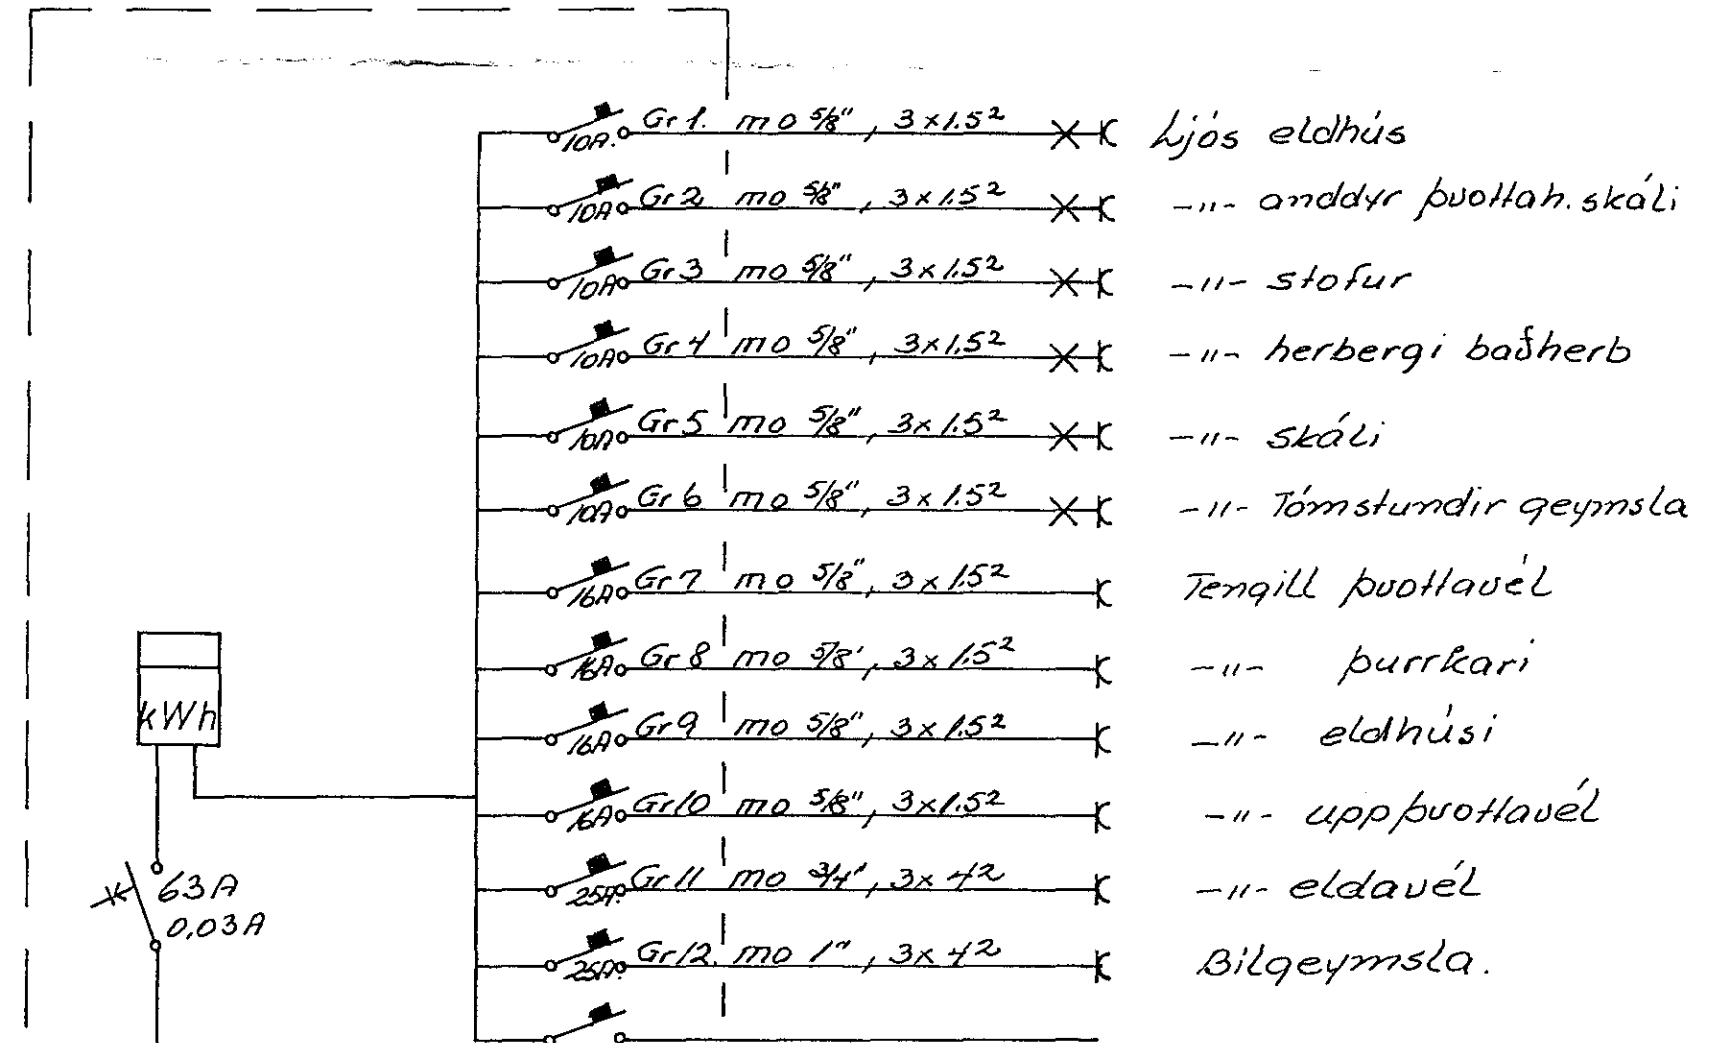 10A. Gr 1. mo 5/8", 3x1.5² Ljós eldhús
10A Gr 2 mo 5/8", 3x1.5² -"- anddyr þvottah. skáli
10A Gr 3 mo 5/8", 3x1.5² -"- stofur
10A Gr 4 mo 5/8", 3x1.5² -"- herbergi baðherb
10A Gr 5 mo 5/8", 3x1.5² -"- skáli
10A Gr 6 mo 5/8", 3x1.5² -"- Tómstundir geymsla
16A Gr 7 mo 5/8", 3x1.5² Tengill þvottavél
16A Gr 8 mo 5/8', 3x1.5² -"- þurrkari
16A Gr 9 mo 5/8", 3x1.5² -"- eldhúsi
16A Gr 10 mo 5/8", 3x1.5² -"- uppþvottavél
25A. Gr 11 mo 3/4", 3x4² -"- eldavél
25A. Gr 12. mo 1", 3x4² Bílgeymsla.
kWh
63A
0,03A